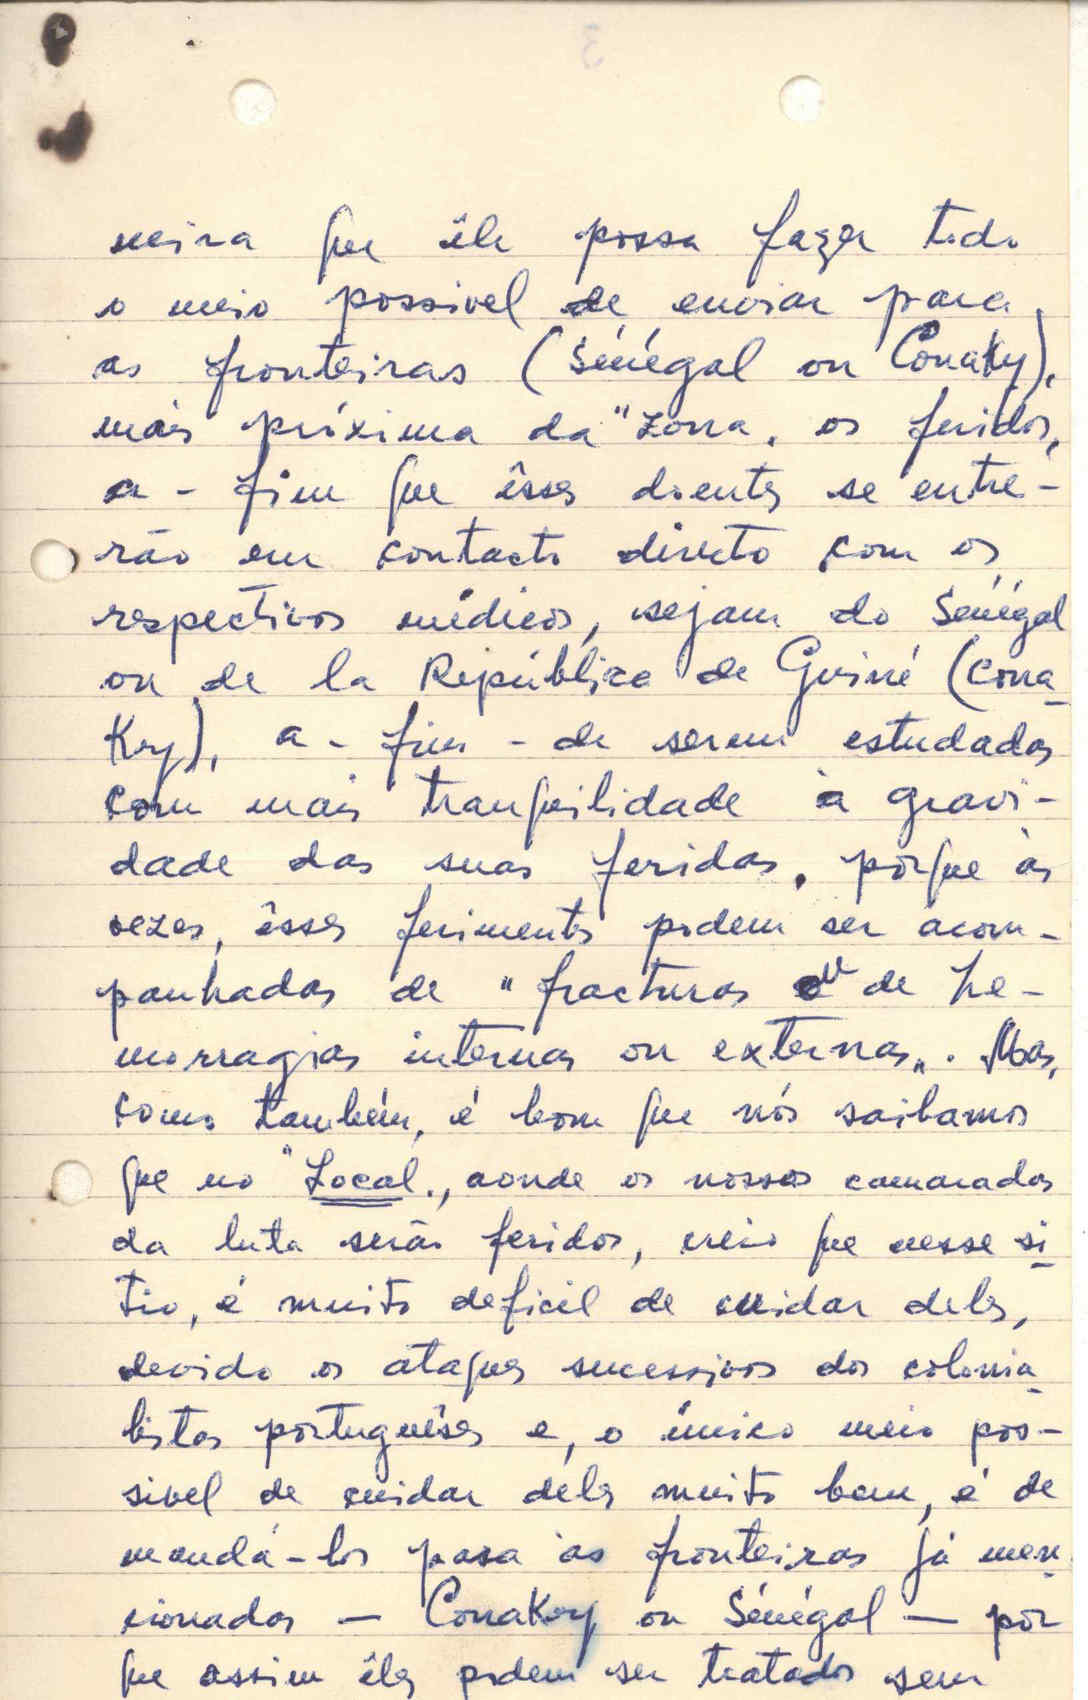 3
neira que êle possa fazer todo
o meio possivel de enviar para
as fronteiras (Sénégal ou Conakry),
mais próxima da "zona, os feridos,
a-fim que êsses doentes se entre-
rão em contacto directo com os
respectivos médicos, sejam do Sénégal
ou de la República de Guiné (Cona-
Kry), a-fim-de serem estudadas
com mais tranquilidade à gravi-
dade das suas feridas, porque às
vezes, êsses ferimentos podem ser acom-
panhadas de "fracturas ou de he-
morragias internas ou externas". Mas,
como também, é bom que nós saibamos
que no "Local", aonde os nossos camaradas
da luta serão feridos, creio que nesse si-
tio, é muito deficil de cuidar deles,
devido os ataques sucessivos dos colonia-
listas portuguêses e, o único meio pos-
sivel de cuidar deles muito bem, é de
mandá-los para às fronteiras já men-
cionadas — Conakry ou Sénégal — por
que assim êles podem ser tratados sem